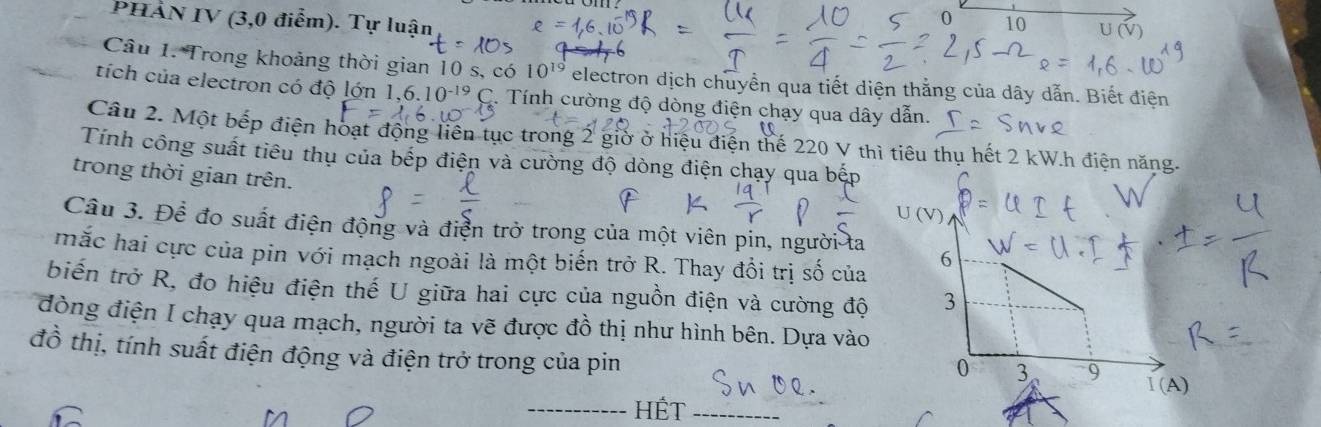 PHẦN IV (3,0 điểm). Tự luận
t = 10s
e = 1,6.10^-19 R = U/I = 10/4 = 5/2 = 2,5 Ω
0 10 U (V)
e = 1,6.10^19
Câu 1. Trong khoảng thời gian 10 s, có 10^19 electron dịch chuyển qua tiết diện thẳng của dây dẫn. Biết điện
tích của electron có độ lớn 1,6.10^-19 C. Tính cường độ dòng điện chạy qua dây dẫn.
I = Snve
F = 1,6.10^-19
Câu 2. Một bếp điện hoạt động liên tục trong 2 giờ ở hiệu điện thế 220 V thì tiêu thụ hết 2 kW.h điện năng.
Tính công suất tiêu thụ của bếp điện và cường độ dòng điện chạy qua bếp
trong thời gian trên.
Câu 3. Để đo suất điện động và điện trở trong của một viên pin, người ta
mắc hai cực của pin với mạch ngoài là một biến trở R. Thay đổi trị số của
biến trở R, đo hiệu điện thế U giữa hai cực của nguồn điện và cường độ
dòng điện I chạy qua mạch, người ta vẽ được đồ thị như hình bên. Dựa vào
đồ thị, tính suất điện động và điện trở trong của pin
U (V)
= U I t W
W = U.I t . I = U/R
6
3
R =
0 3 9 I (A)
----------- HẾT ----------